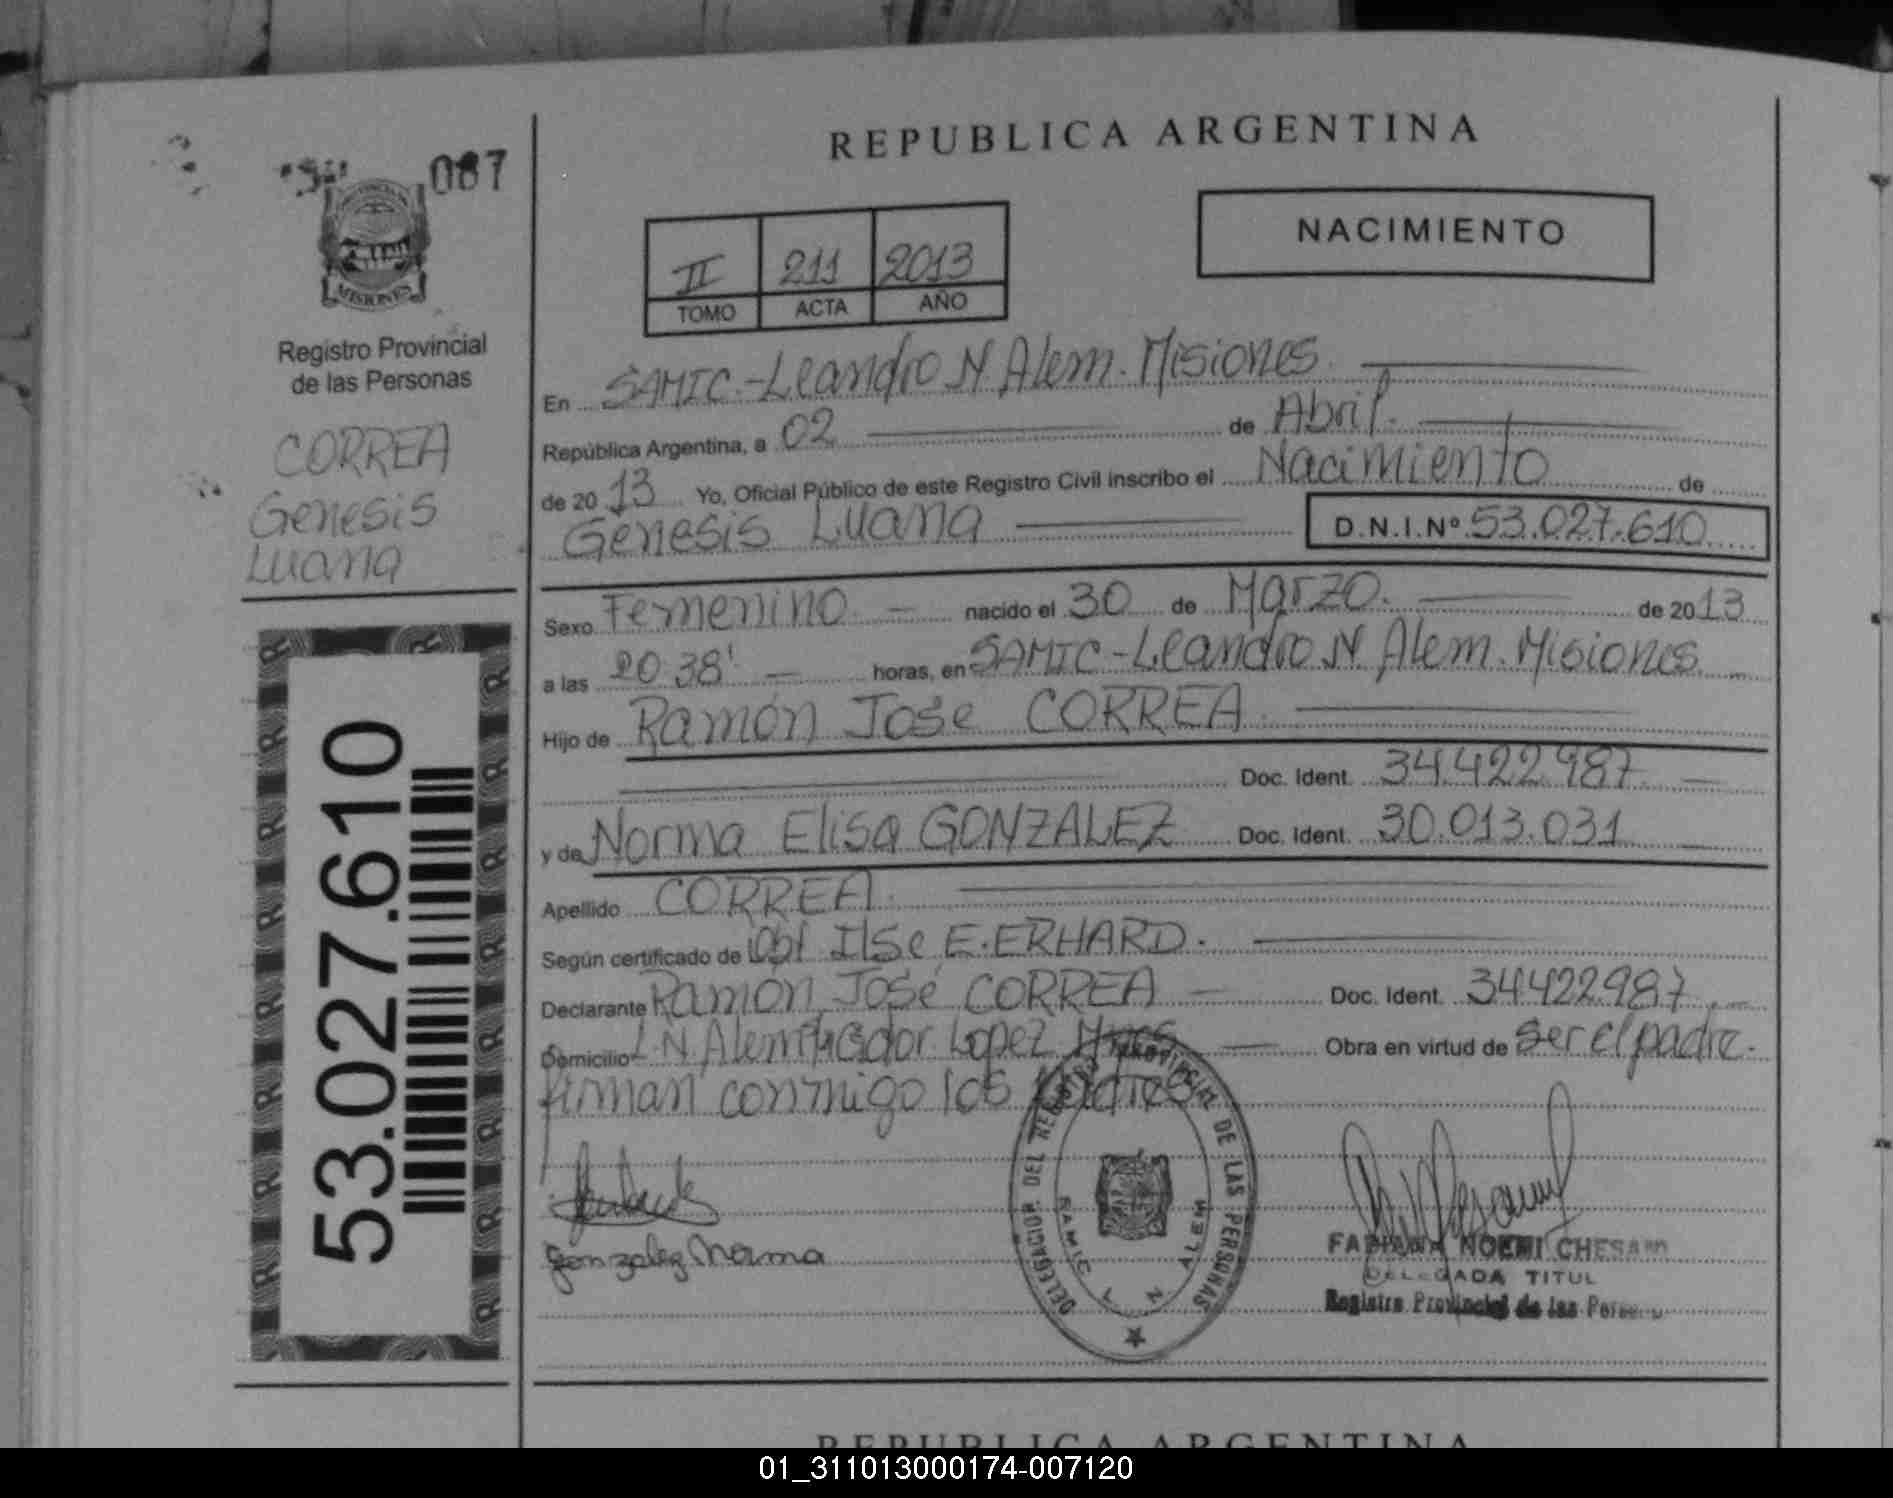 087
MISIONES
Registro Provincial
de las Personas
CORREA
Genesis
Luana
53.027.610
REPUBLICA ARGENTINA
NACIMIENTO
II 211 2013
TOMO ACTA AÑO
En SAMIC.-Leandro N Alem. Misiones.
República Argentina, a 02 de Abril.
de 2013 Yo, Oficial Público de este Registro Civil inscribo el Nacimiento de
Genesis Luana D.N.I.Nº 53.027.610
Sexo Femenino nacido el 30 de Marzo. de 2013
a las 20 38' horas, en SAMIC-Leandro N Alem. Misiones
Hijo de Ramón José CORREA
Doc. Ident. 34.422.987
y de Norma Elisa GONZALEZ Doc. Ident. 30.013.031
Apellido CORREA.
Según certificado de Obt Ilse E. ERHARD.
Declarante Ramón José CORREA Doc. Ident. 34422987
Domicilio L N Alem Lopez Obra en virtud de ser el padre.
firman conmigo los Padres
Gonzalez Norma
DELEGACION DEL REGISTRO PROVINCIAL DE LAS PERSONAS
SAMIC L N ALEM
FABIANA NOEMI
DELEGADA TITUL
Registro Provincial de las
REPUBLICA ARGENTINA
01_311013000174-007120